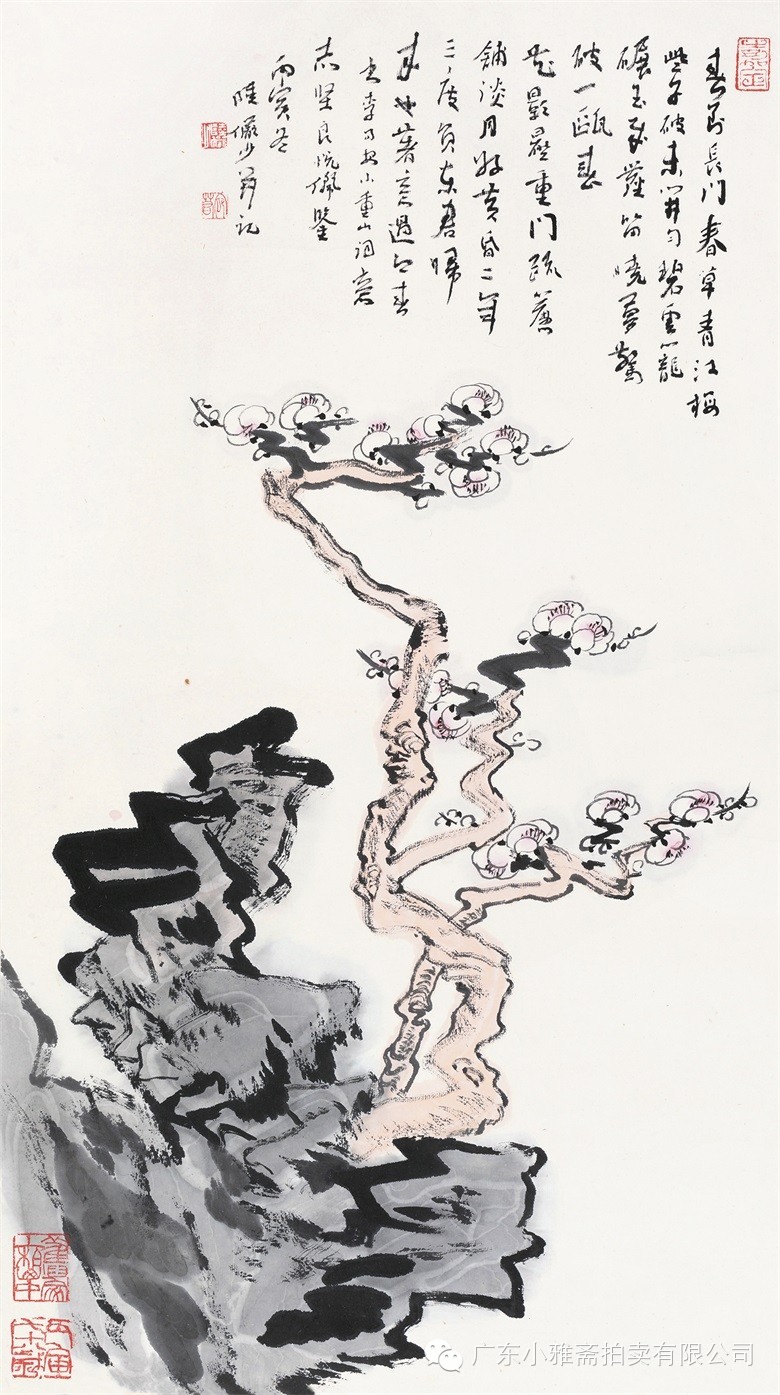 春到長门春草青江梅
些子破未開勻碧雲籠
碾玉成塵留曉夢驚
破一甌春
花影壓重门疏簾
鋪淡月好黃昏二年
三度負東君歸
來也著意過今春
李易安小重山詞意
志坚良悦佩鑒
丙寅冬
陸儼少并記
广东小雅斋拍卖有限公司